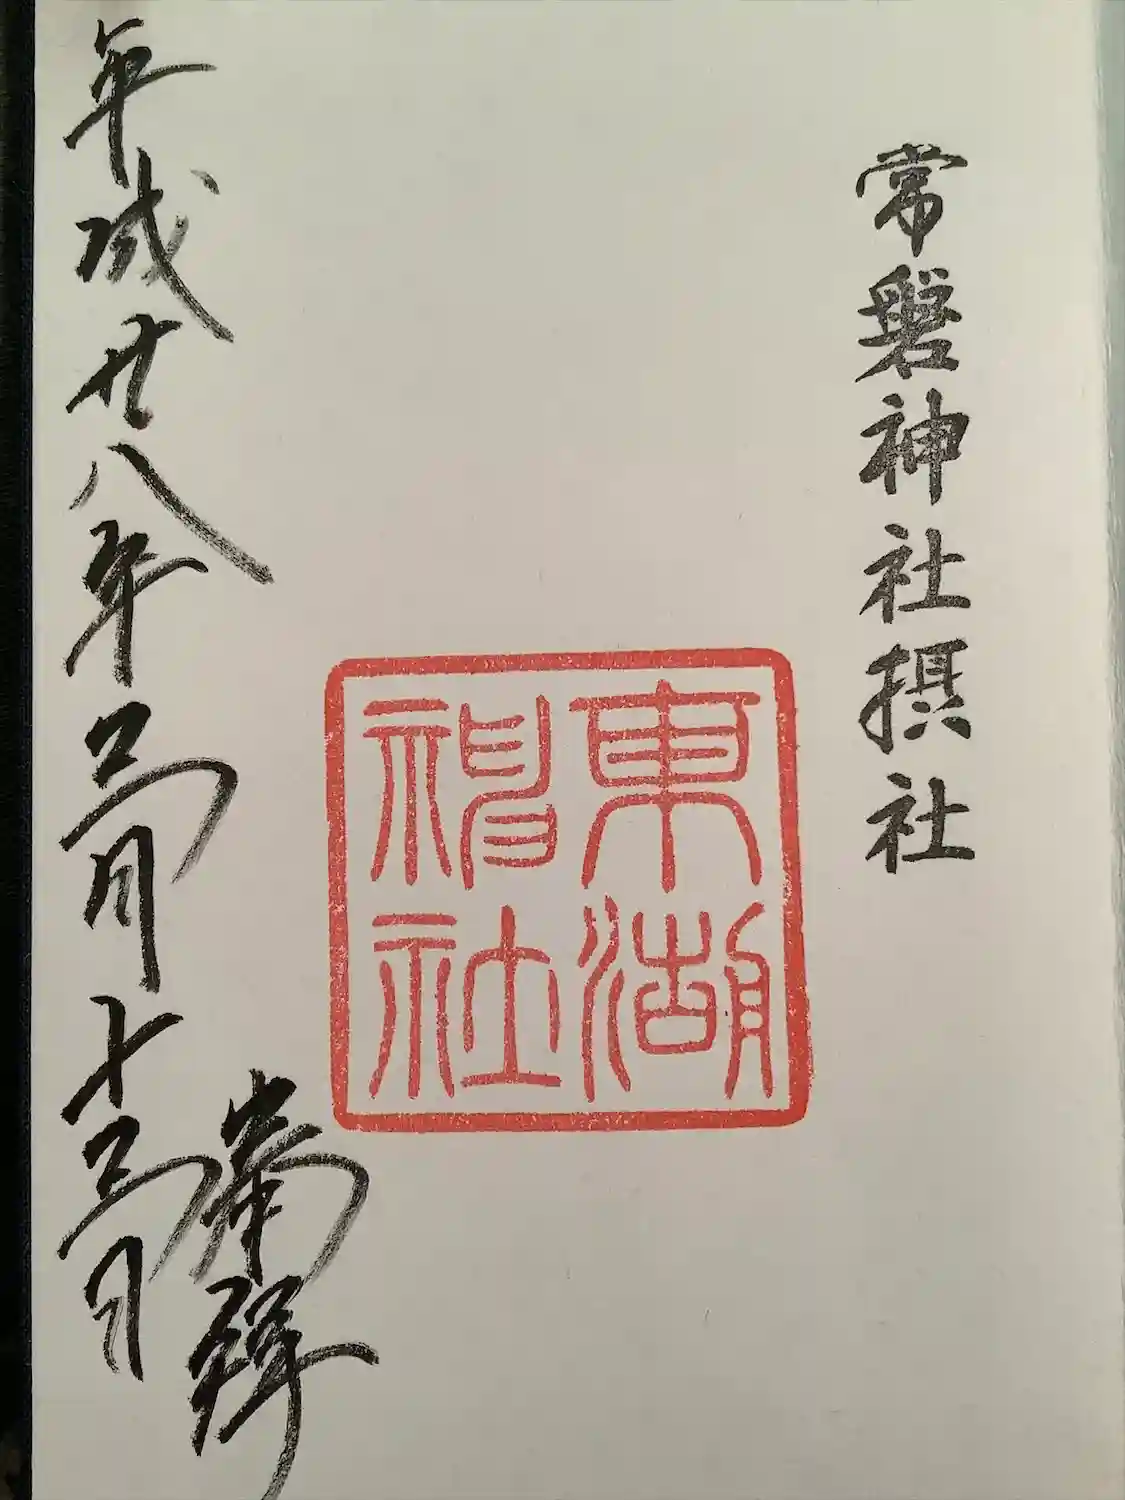 常磐神社摂社
東湖
神社
平成廿八年三月十三日